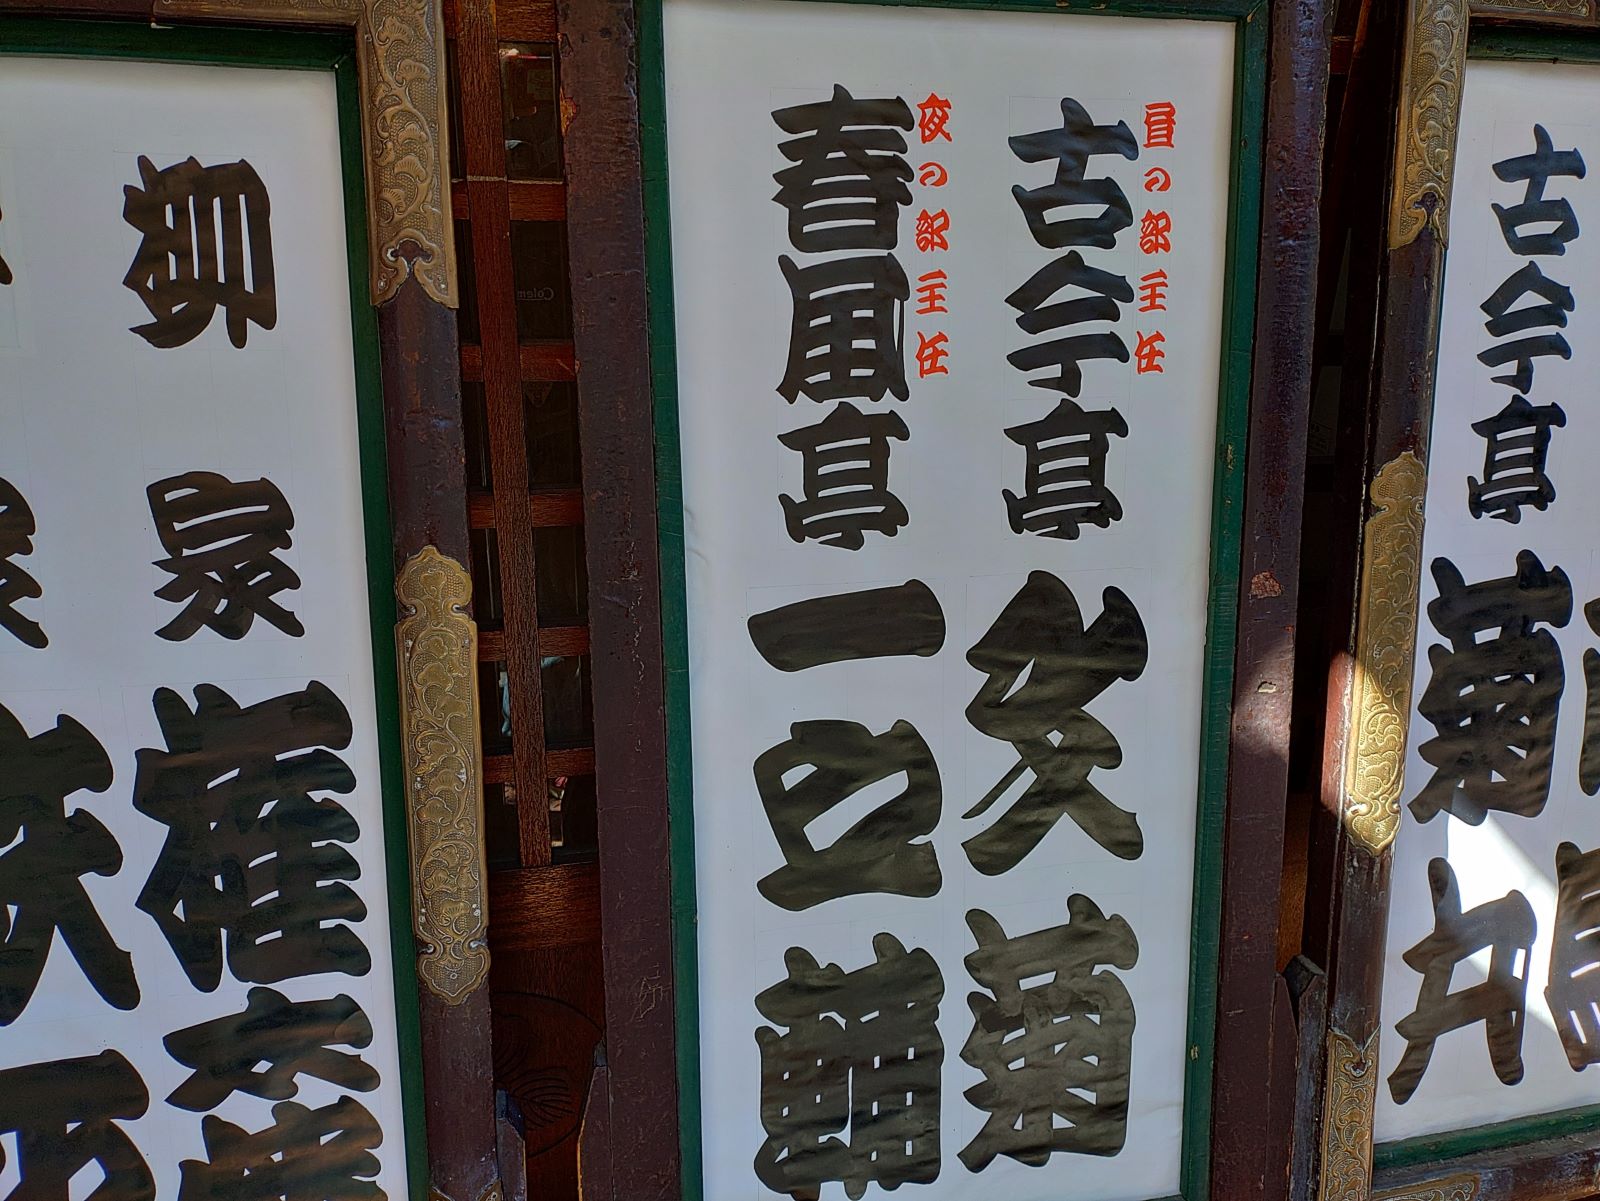 古今亭菊丸
昼の部主任
古今亭文菊
夜の部主任
春風亭一之輔
柳家権太楼